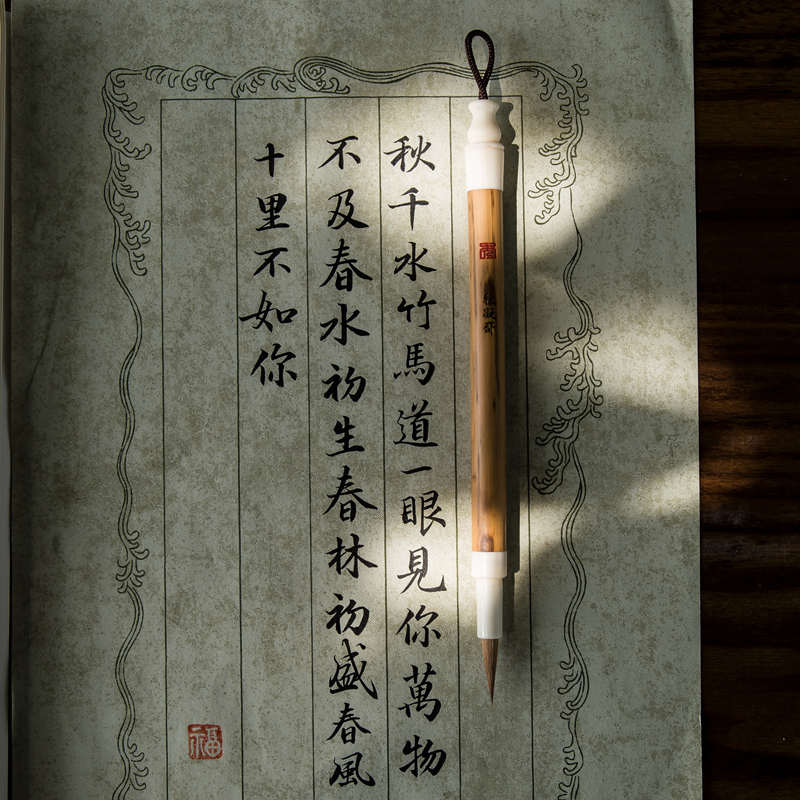 秋千水竹馬道一眼見你萬物
不及春水初生春林初盛春風
十里不如你
福